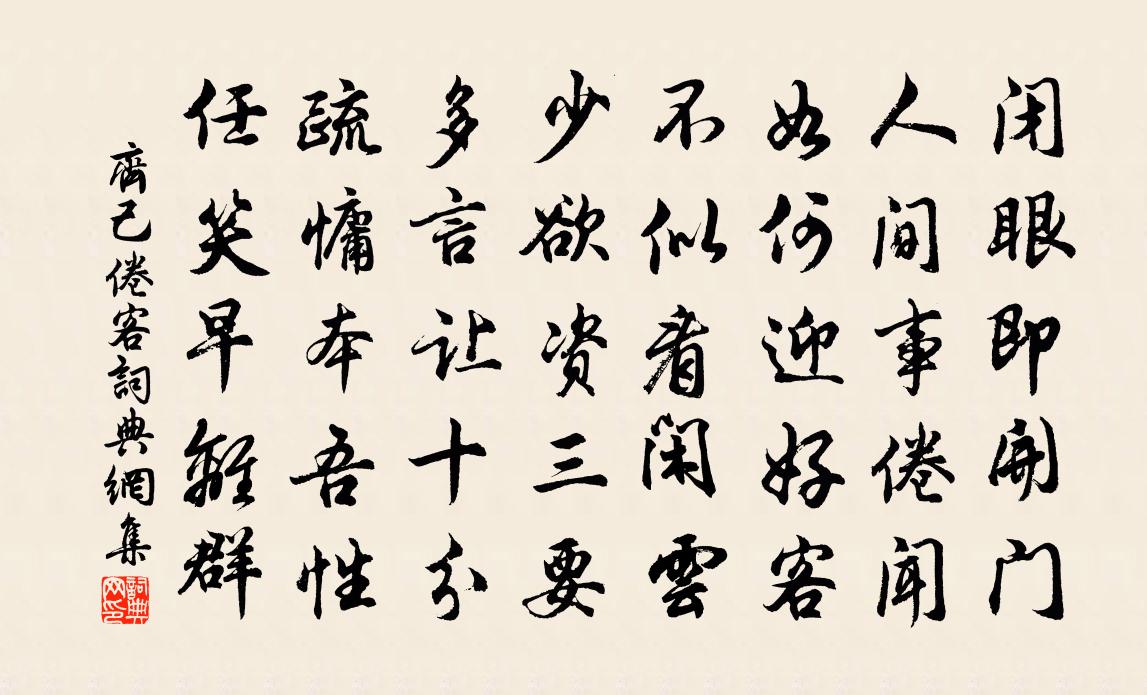 闭眼即開门
人间事倦闻
如何迎好客
不似看闲雲
少欲资三要
多言让十分
疏慵本吾性
任笑早離群
齊己倦客詞典網集
詞典网印